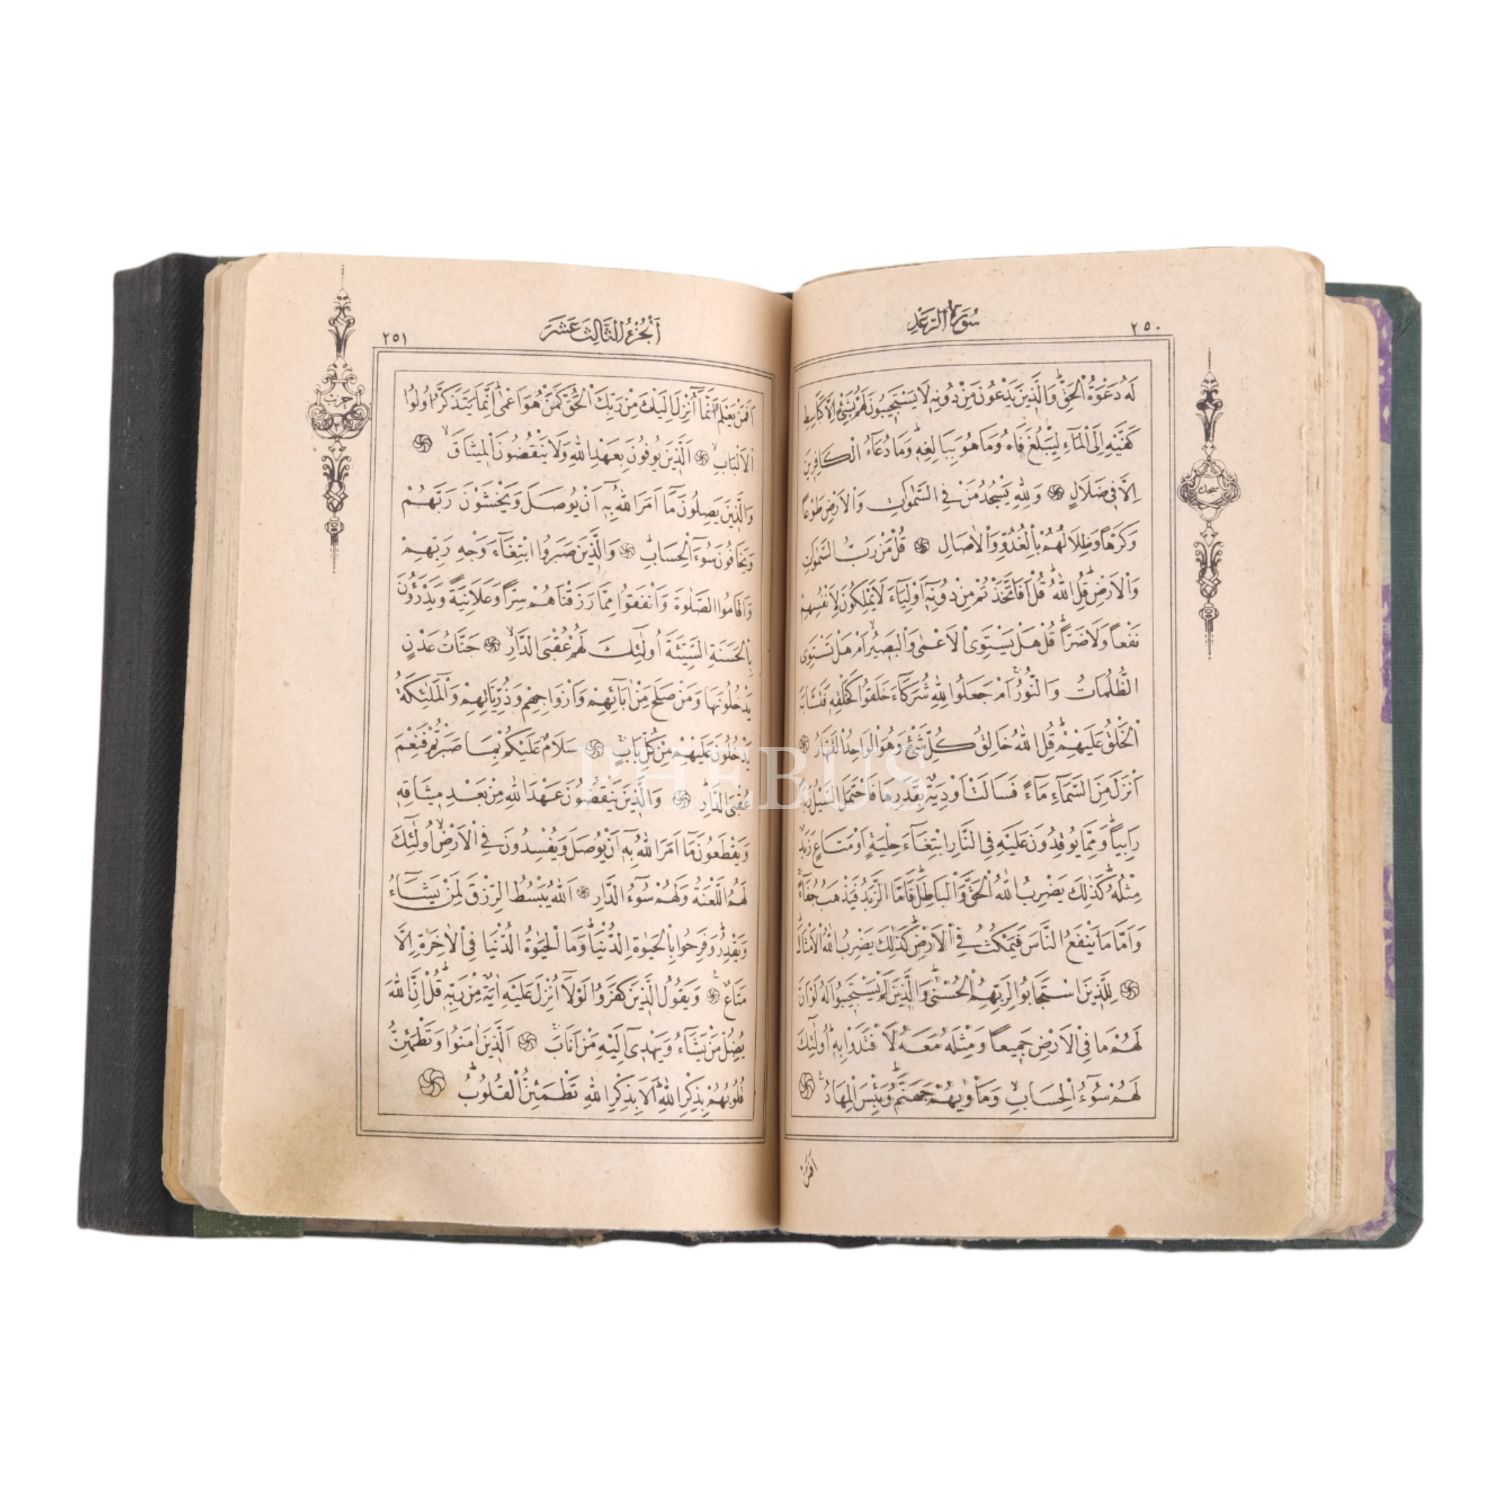 ٢٥٠
سُورَةُ الرَّعْدِ
لَهُ دَعْوَةُ الْحَقِّ وَالَّذِينَ يَدْعُونَ مِنْ دُونِهِ لَا يَسْتَجِيبُونَ لَهُمْ بِشَيْءٍ إِلَّا كَبَاسِطِ
كَفَّيْهِ إِلَى الْمَاءِ لِيَبْلُغَ فَاهُ وَمَا هُوَ بِبَالِغِهِ وَمَا دُعَاءُ الْكَافِرِينَ
إِلَّا فِي ضَلَالٍ وَلِلّٰهِ يَسْجُدُ مَنْ فِي السَّمٰوَاتِ وَالْأَرْضِ طَوْعًا
وَكَرْهًا وَظِلَالُهُمْ بِالْغُدُوِّ وَالْآصَالِ قُلْ مَنْ رَبُّ السَّمٰوَاتِ
وَالْأَرْضِ قُلِ اللّٰهُ قُلْ أَفَاتَّخَذْتُمْ مِنْ دُونِهِ أَوْلِيَاءَ لَا يَمْلِكُونَ لِأَنْفُسِهِمْ
نَفْعًا وَلَا ضَرًّا قُلْ هَلْ يَسْتَوِي الْأَعْمٰى وَالْبَصِيرُ أَمْ هَلْ تَسْتَوِي
الظُّلُمَاتُ وَالنُّورُ أَمْ جَعَلُوا لِلّٰهِ شُرَكَاءَ خَلَقُوا كَخَلْقِهِ فَتَشَابَهَ
الْخَلْقُ عَلَيْهِمْ قُلِ اللّٰهُ خَالِقُ كُلِّ شَيْءٍ وَهُوَ الْوَاحِدُ الْقَهَّارُ
أَنْزَلَ مِنَ السَّمَاءِ مَاءً فَسَالَتْ أَوْدِيَةٌ بِقَدَرِهَا فَاحْتَمَلَ السَّيْلُ زَبَدًا
رَابِيًا وَمِمَّا يُوقِدُونَ عَلَيْهِ فِي النَّارِ ابْتِغَاءَ حِلْيَةٍ أَوْ مَتَاعٍ زَبَدٌ
مِثْلُهُ كَذٰلِكَ يَضْرِبُ اللّٰهُ الْحَقَّ وَالْبَاطِلَ فَأَمَّا الزَّبَدُ فَيَذْهَبُ جُفَاءً
وَأَمَّا مَا يَنْفَعُ النَّاسَ فَيَمْكُثُ فِي الْأَرْضِ كَذٰلِكَ يَضْرِبُ اللّٰهُ الْأَمْثَالَ
لِلَّذِينَ اسْتَجَابُوا لِرَبِّهِمُ الْحُسْنٰى وَالَّذِينَ لَمْ يَسْتَجِيبُوا لَهُ لَوْ أَنَّ
لَهُمْ مَا فِي الْأَرْضِ جَمِيعًا وَمِثْلَهُ مَعَهُ لَافْتَدَوْا بِهِ أُولٰئِكَ
لَهُمْ سُوءُ الْحِسَابِ وَمَأْوٰيهُمْ جَهَنَّمُ وَبِئْسَ الْمِهَادُ
أَفَمَنْ
٢٥١
اَلْجُزْءُ الثَّالِثَ عَشَرَ
حزب
أَفَمَنْ يَعْلَمُ أَنَّمَا أُنْزِلَ إِلَيْكَ مِنْ رَبِّكَ الْحَقُّ كَمَنْ هُوَ أَعْمٰى إِنَّمَا يَتَذَكَّرُ أُولُوا
الْأَلْبَابِ الَّذِينَ يُوفُونَ بِعَهْدِ اللّٰهِ وَلَا يَنْقُضُونَ الْمِيثَاقَ
وَالَّذِينَ يَصِلُونَ مَا أَمَرَ اللّٰهُ بِهِ أَنْ يُوصَلَ وَيَخْشَوْنَ رَبَّهُمْ
وَيَخَافُونَ سُوءَ الْحِسَابِ وَالَّذِينَ صَبَرُوا ابْتِغَاءَ وَجْهِ رَبِّهِمْ
وَأَقَامُوا الصَّلٰوةَ وَأَنْفَقُوا مِمَّا رَزَقْنَاهُمْ سِرًّا وَعَلَانِيَةً وَيَدْرَؤُنَ
بِالْحَسَنَةِ السَّيِّئَةَ أُولٰئِكَ لَهُمْ عُقْبَى الدَّارِ جَنَّاتُ عَدْنٍ
يَدْخُلُونَهَا وَمَنْ صَلَحَ مِنْ اٰبَائِهِمْ وَأَزْوَاجِهِمْ وَذُرِّيَّاتِهِمْ وَالْمَلٰئِكَةُ
يَدْخُلُونَ عَلَيْهِمْ مِنْ كُلِّ بَابٍ سَلَامٌ عَلَيْكُمْ بِمَا صَبَرْتُمْ فَنِعْمَ
عُقْبَى الدَّارِ وَالَّذِينَ يَنْقُضُونَ عَهْدَ اللّٰهِ مِنْ بَعْدِ مِيثَاقِهِ
وَيَقْطَعُونَ مَا أَمَرَ اللّٰهُ بِهِ أَنْ يُوصَلَ وَيُفْسِدُونَ فِي الْأَرْضِ أُولٰئِكَ
لَهُمُ اللَّعْنَةُ وَلَهُمْ سُوءُ الدَّارِ اللّٰهُ يَبْسُطُ الرِّزْقَ لِمَنْ يَشَاءُ
وَيَقْدِرُ وَفَرِحُوا بِالْحَيٰوةِ الدُّنْيَا وَمَا الْحَيٰوةُ الدُّنْيَا فِي الْاٰخِرَةِ إِلَّا
مَتَاعٌ وَيَقُولُ الَّذِينَ كَفَرُوا لَوْلَا أُنْزِلَ عَلَيْهِ اٰيَةٌ مِنْ رَبِّهِ قُلْ إِنَّ اللّٰهَ
يُضِلُّ مَنْ يَشَاءُ وَيَهْدِي إِلَيْهِ مَنْ أَنَابَ الَّذِينَ اٰمَنُوا وَتَطْمَئِنُّ
قُلُوبُهُمْ بِذِكْرِ اللّٰهِ أَلَا بِذِكْرِ اللّٰهِ تَطْمَئِنُّ الْقُلُوبُ
PHEBUS